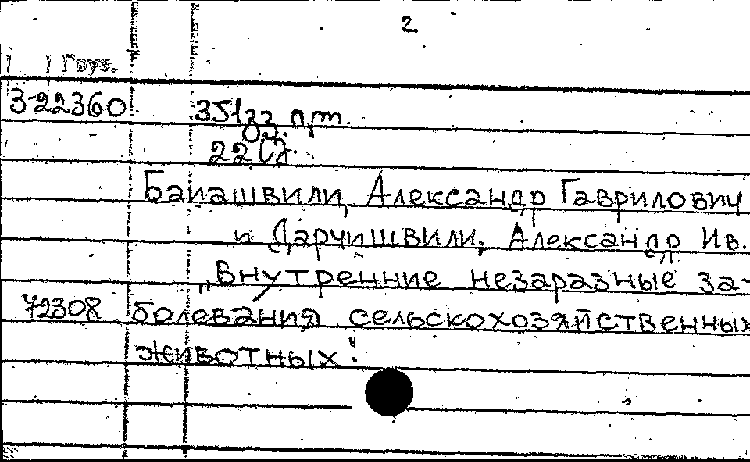 2
Груз.
3-22360
22
Баиашвили, Александр Гаврилович
и Дарчишвили, Александр Ив.
„Внутренние незаразные за-
72308 болевания сельскохозяйственных
животных".